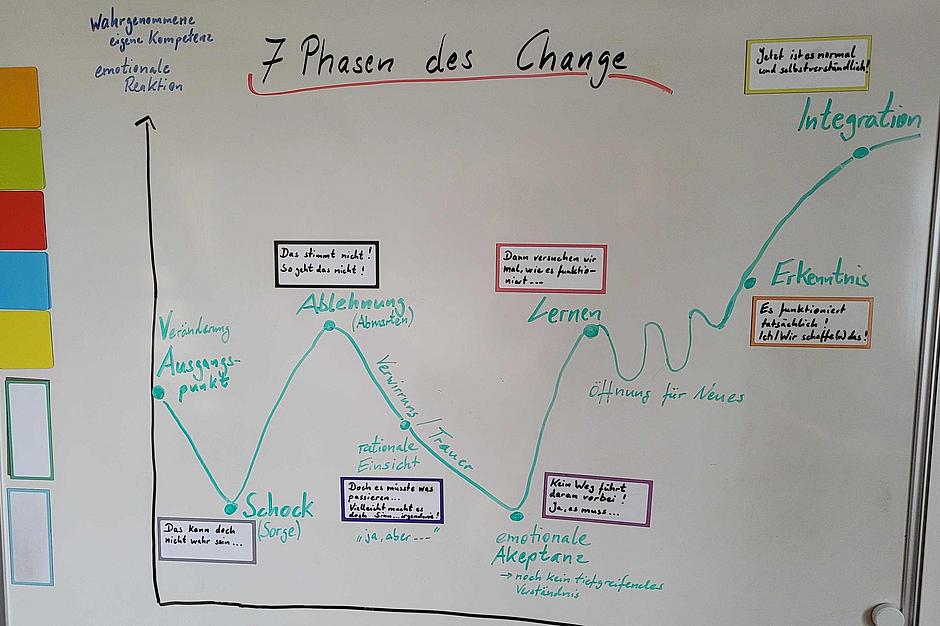 Wahrgenommene
eigene Kompetenz
emotionale
Reaktion
7 Phasen des Change
Jetzt ist es normal
und selbstverständlich!
Integration
Das stimmt nicht!
So geht das nicht!
Ablehnung
(Abwarten)
Dann versuchen wir
mal, wie es funktio-
niert...
Lernen
Erkenntnis
Es funktioniert
tatsächlich!
Ich/Wir schaffe(n) das!
Veränderung
Ausgangs-
punkt
Öffnung für Neues
Verwirrung / Trauer
rationale
Einsicht
Doch es müsste was
passieren...
Vielleicht macht es
doch Sinn...irgendwie!
"ja, aber ---"
Kein Weg führt
daran vorbei!
Ja, es muss...
Schock
(Sorge)
Das kann doch
nicht wahr sein...
emotionale
Akeptanz
→ noch kein tiefgreifendes
Verständnis